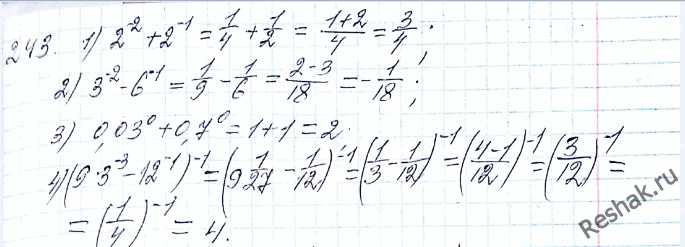 243. 1) 2⁻² + 2⁻¹ = 1/4 + 1/2 = (1+2)/4 = 3/4 ;
2) 3⁻² - 6⁻¹ = 1/9 - 1/6 = (2-3)/18 = -1/18 ;
3) 0,03⁰ + 0,7⁰ = 1 + 1 = 2
4) (9·3⁻³ - 12⁻¹)⁻¹ = (9 1/27 - 1/12)⁻¹ = (1/3 - 1/12)⁻¹ = ((4-1)/12)⁻¹ = (3/12)⁻¹ =
= (1/4)⁻¹ = 4.
Reshak.ru